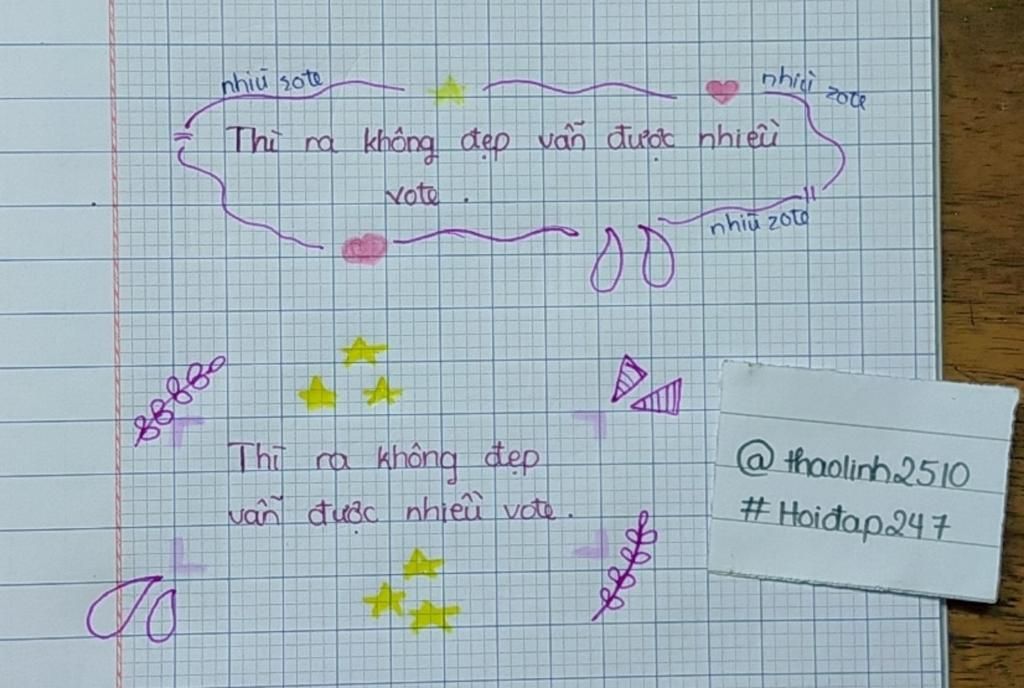 nhiũ zote
nhiũ zote
Thì ra không đẹp vẫn được nhiều
vote .
nhiũ zote
Thì ra không đẹp
vẫn được nhiều vote .
@thaolinh2510
#Hoidap247